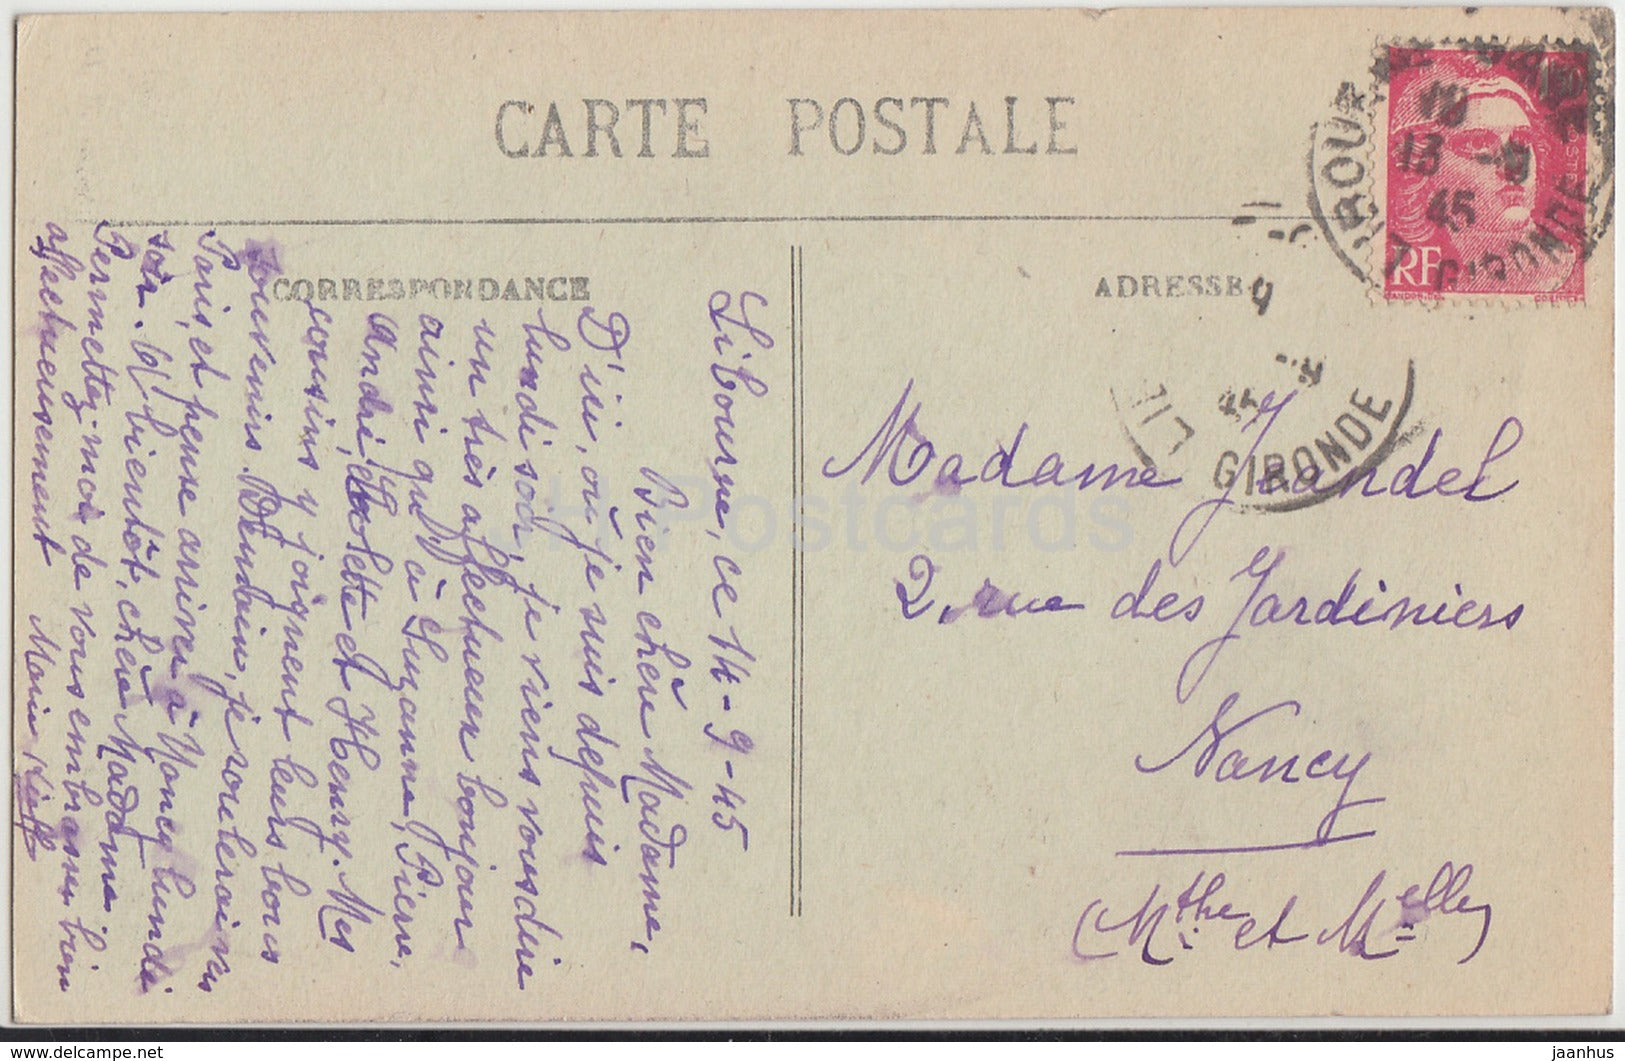 CARTE POSTALE
CORRESPONDANCE
ADRESSE
Libourne, ce 14-9-45
Bien chère Madame,
D'ici, où je suis depuis
lundi soir, je viens vous dire
un très affectueux bonjour
ainsi qu'à Suzanne, Pierre,
André, Colette et Henry. Mes
cousins y joignent leurs bons
souvenirs. Demain, je rentrerai
Paris, et pense arriver à Nancy lundi
soir. A bientôt, chère Madame
Permettez-moi de vous embrasser bien
affectueusement Marie
Madame Jeandel
2, rue des Jardiniers
Nancy
(Mthe et Melle)
LIBOURNE
18
13 -9
45
GIRONDE
RF
GANDON
POSTES
LIB
GIRONDE
JH Postcards
delcampe.net
jaanhus